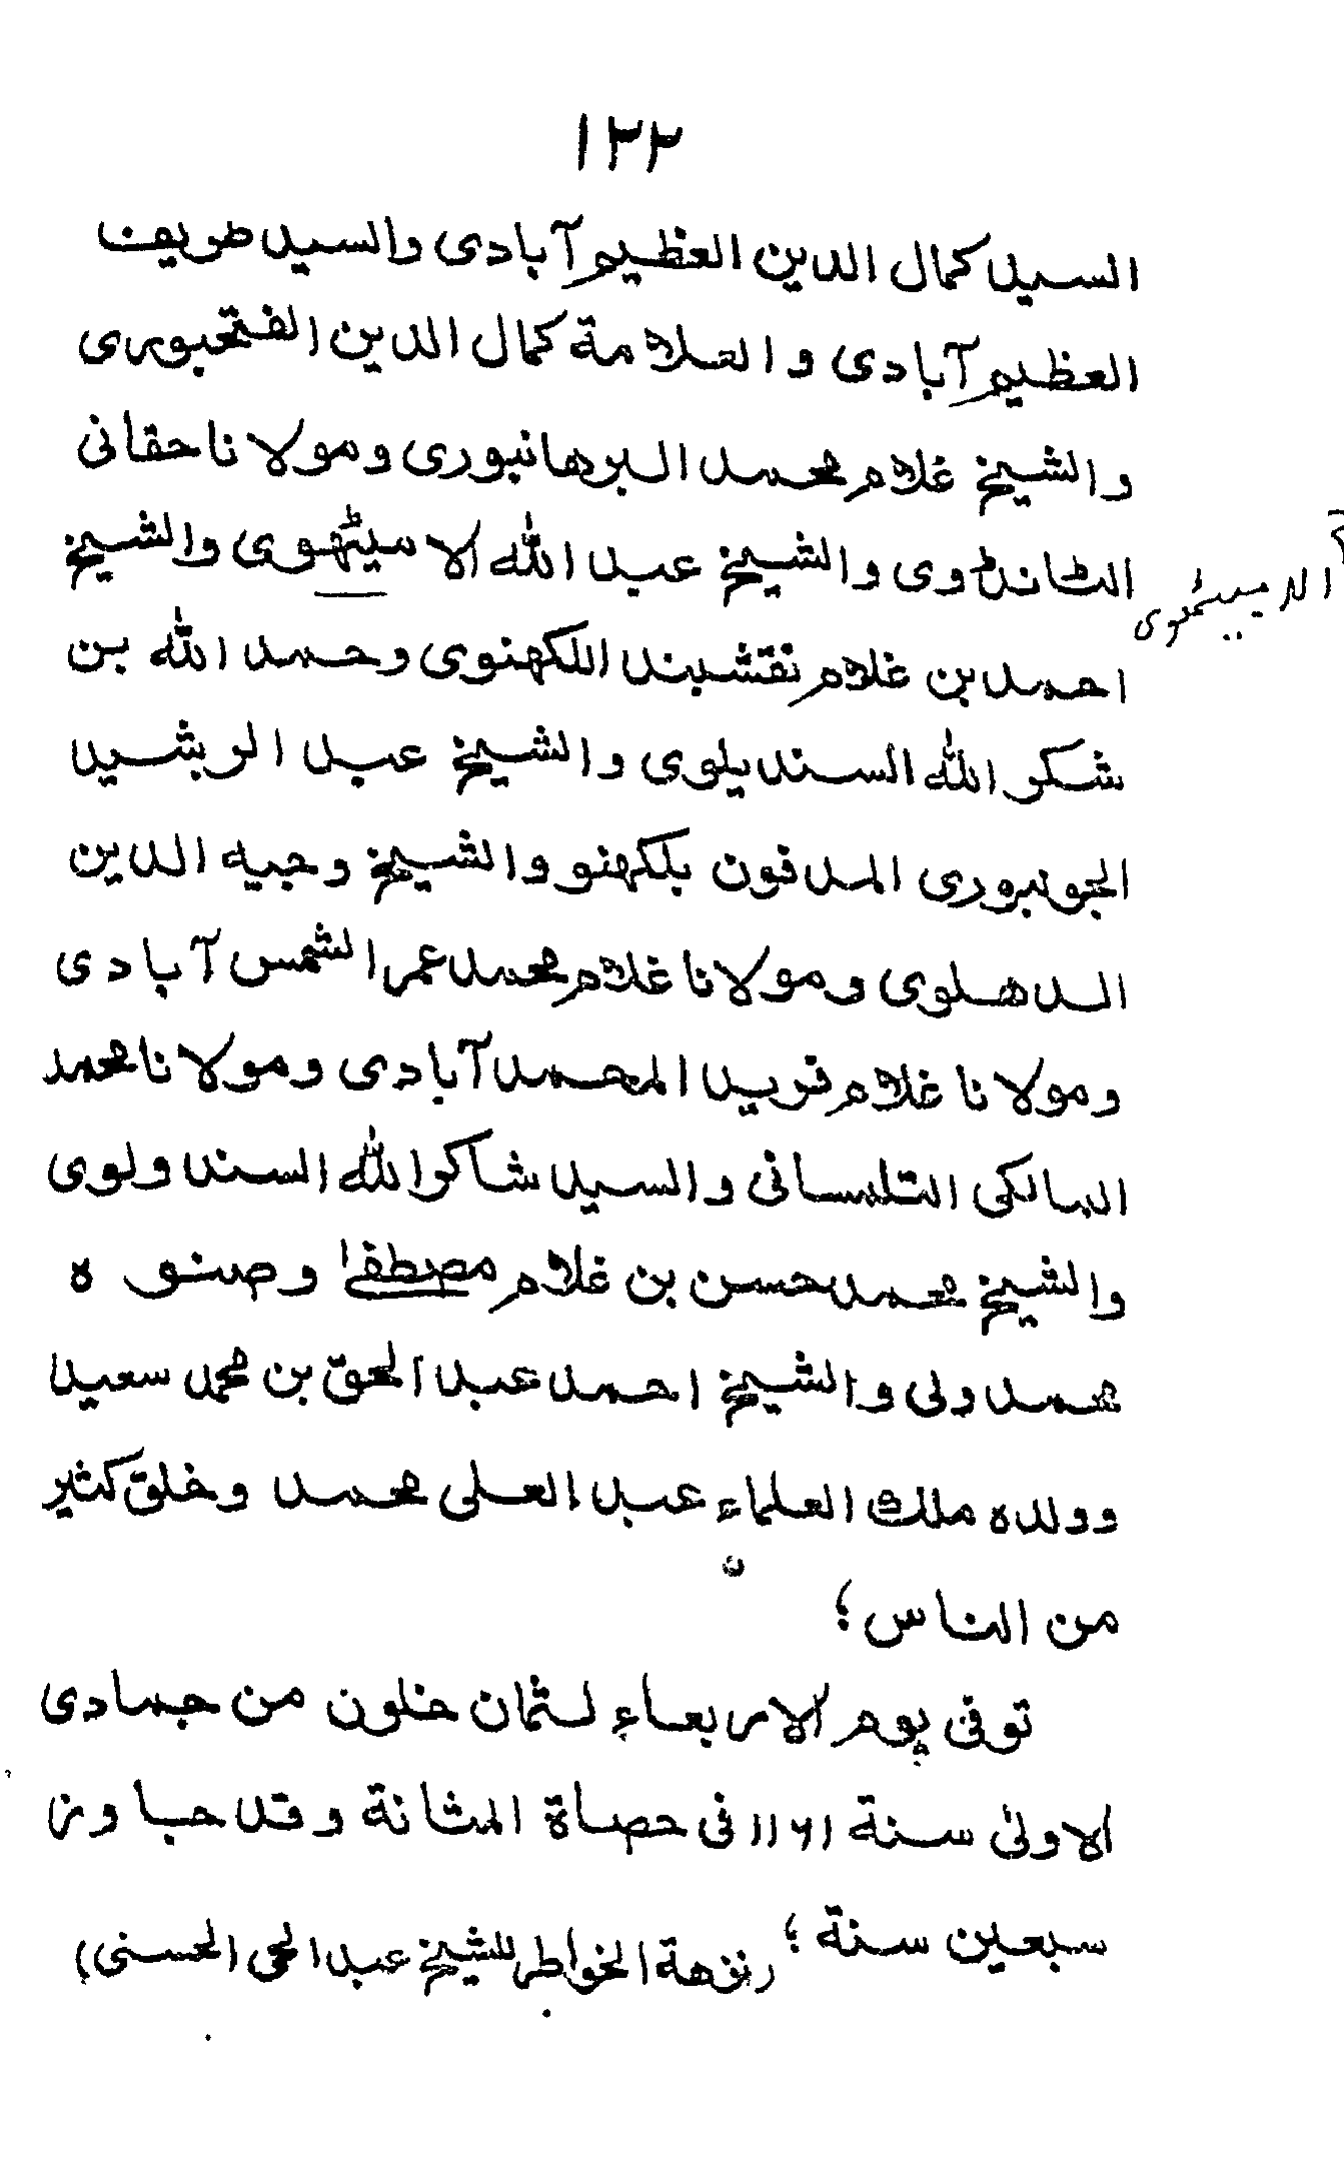 ١٢٢
السيد كمال الدين العظيم آبادى والسيد ظريف
العظيم آبادى و العلامة كمال الدين الفتحپورى
والشيخ غلام محمد البرهانپورى ومولانا حقانى
الٹانڈوى والشيخ عبد الله الاميٹھوى والشيخ
الاميٹھوى
احمد بن غلام نقشبند اللكهنوى وحمد الله بن
شكر الله السنديلوى والشيخ عبد الرشيد
الجونپورى المدفون بلكهنو والشيخ وجيه الدين
الدهلوى ومولانا غلام محمد عمر الشمس آبادى
ومولانا غلام فريد المحمد آبادى ومولانا محمد
المالكى التلمسانى والسيد شاكر الله السندولوى
والشيخ محمد حسن بن غلام مصطفىٰ وصنوه
محمد ولى والشيخ احمد عبد الحق بن محمد سعيد
وولده ملك العلماء عبد العلى محمد وخلق كثير
من الناس ؛
توفى يوم الاربعاء لثمان خلون من جمادى
الاولىٰ سنة ١١٦١ فى حصاة المثانة وقد جاوز
سبعين سنة ؛ (نزهة الخواطر للشيخ عبد الحى الحسنى)